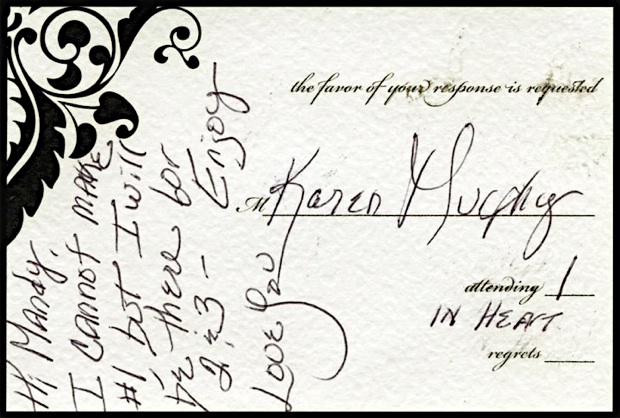 the favor of your response is requested
M Karen Murphy
attending 1
IN HEART
regrets
Hi Mandy,
I CANNOT MAKE
#1 but I will
be there for
2 & 3 - Enjoy
Love You